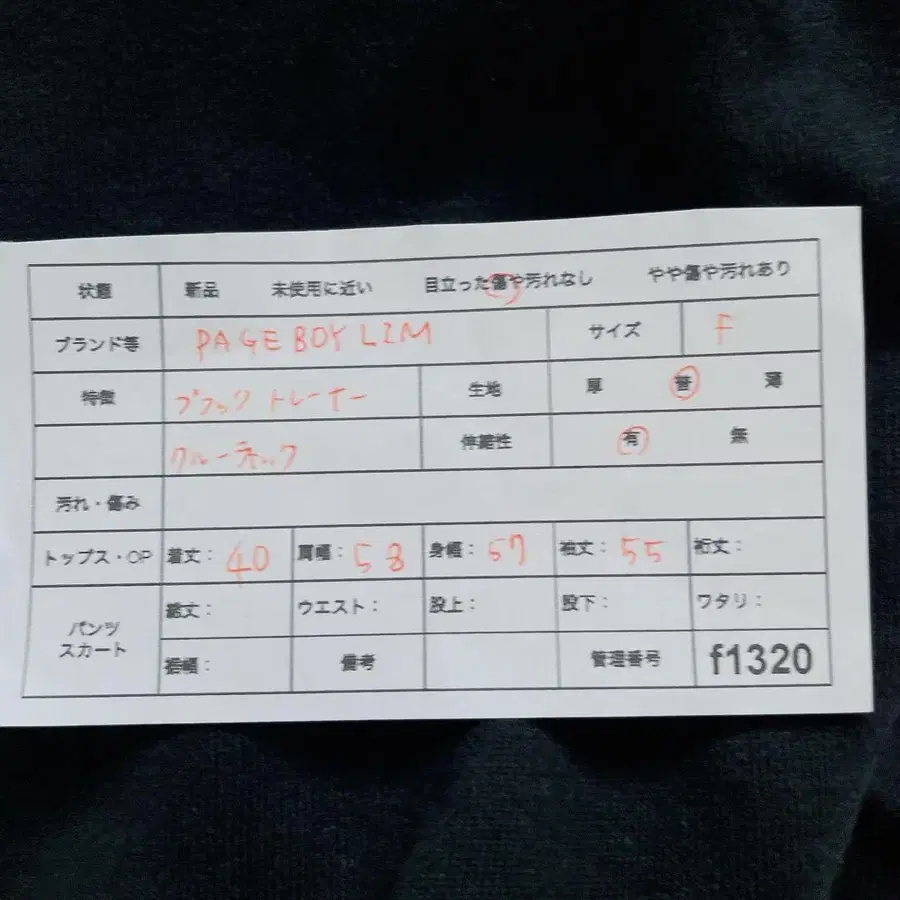 状態 新品 未使用に近い 目立った傷や汚れなし やや傷や汚れあり
ブランド等 PAGE BOY LIM サイズ F
特徴 ブラック トレーナー 生地 厚 普 薄
クルーネック 伸縮性 有 無
汚れ・傷み
トップス・OP 着丈: 40 肩幅: 58 身幅: 57 袖丈: 55 裄丈:
パンツ 総丈: ウエスト: 股上: 股下: ワタリ:
スカート 裾幅: 備考 管理番号 f1320